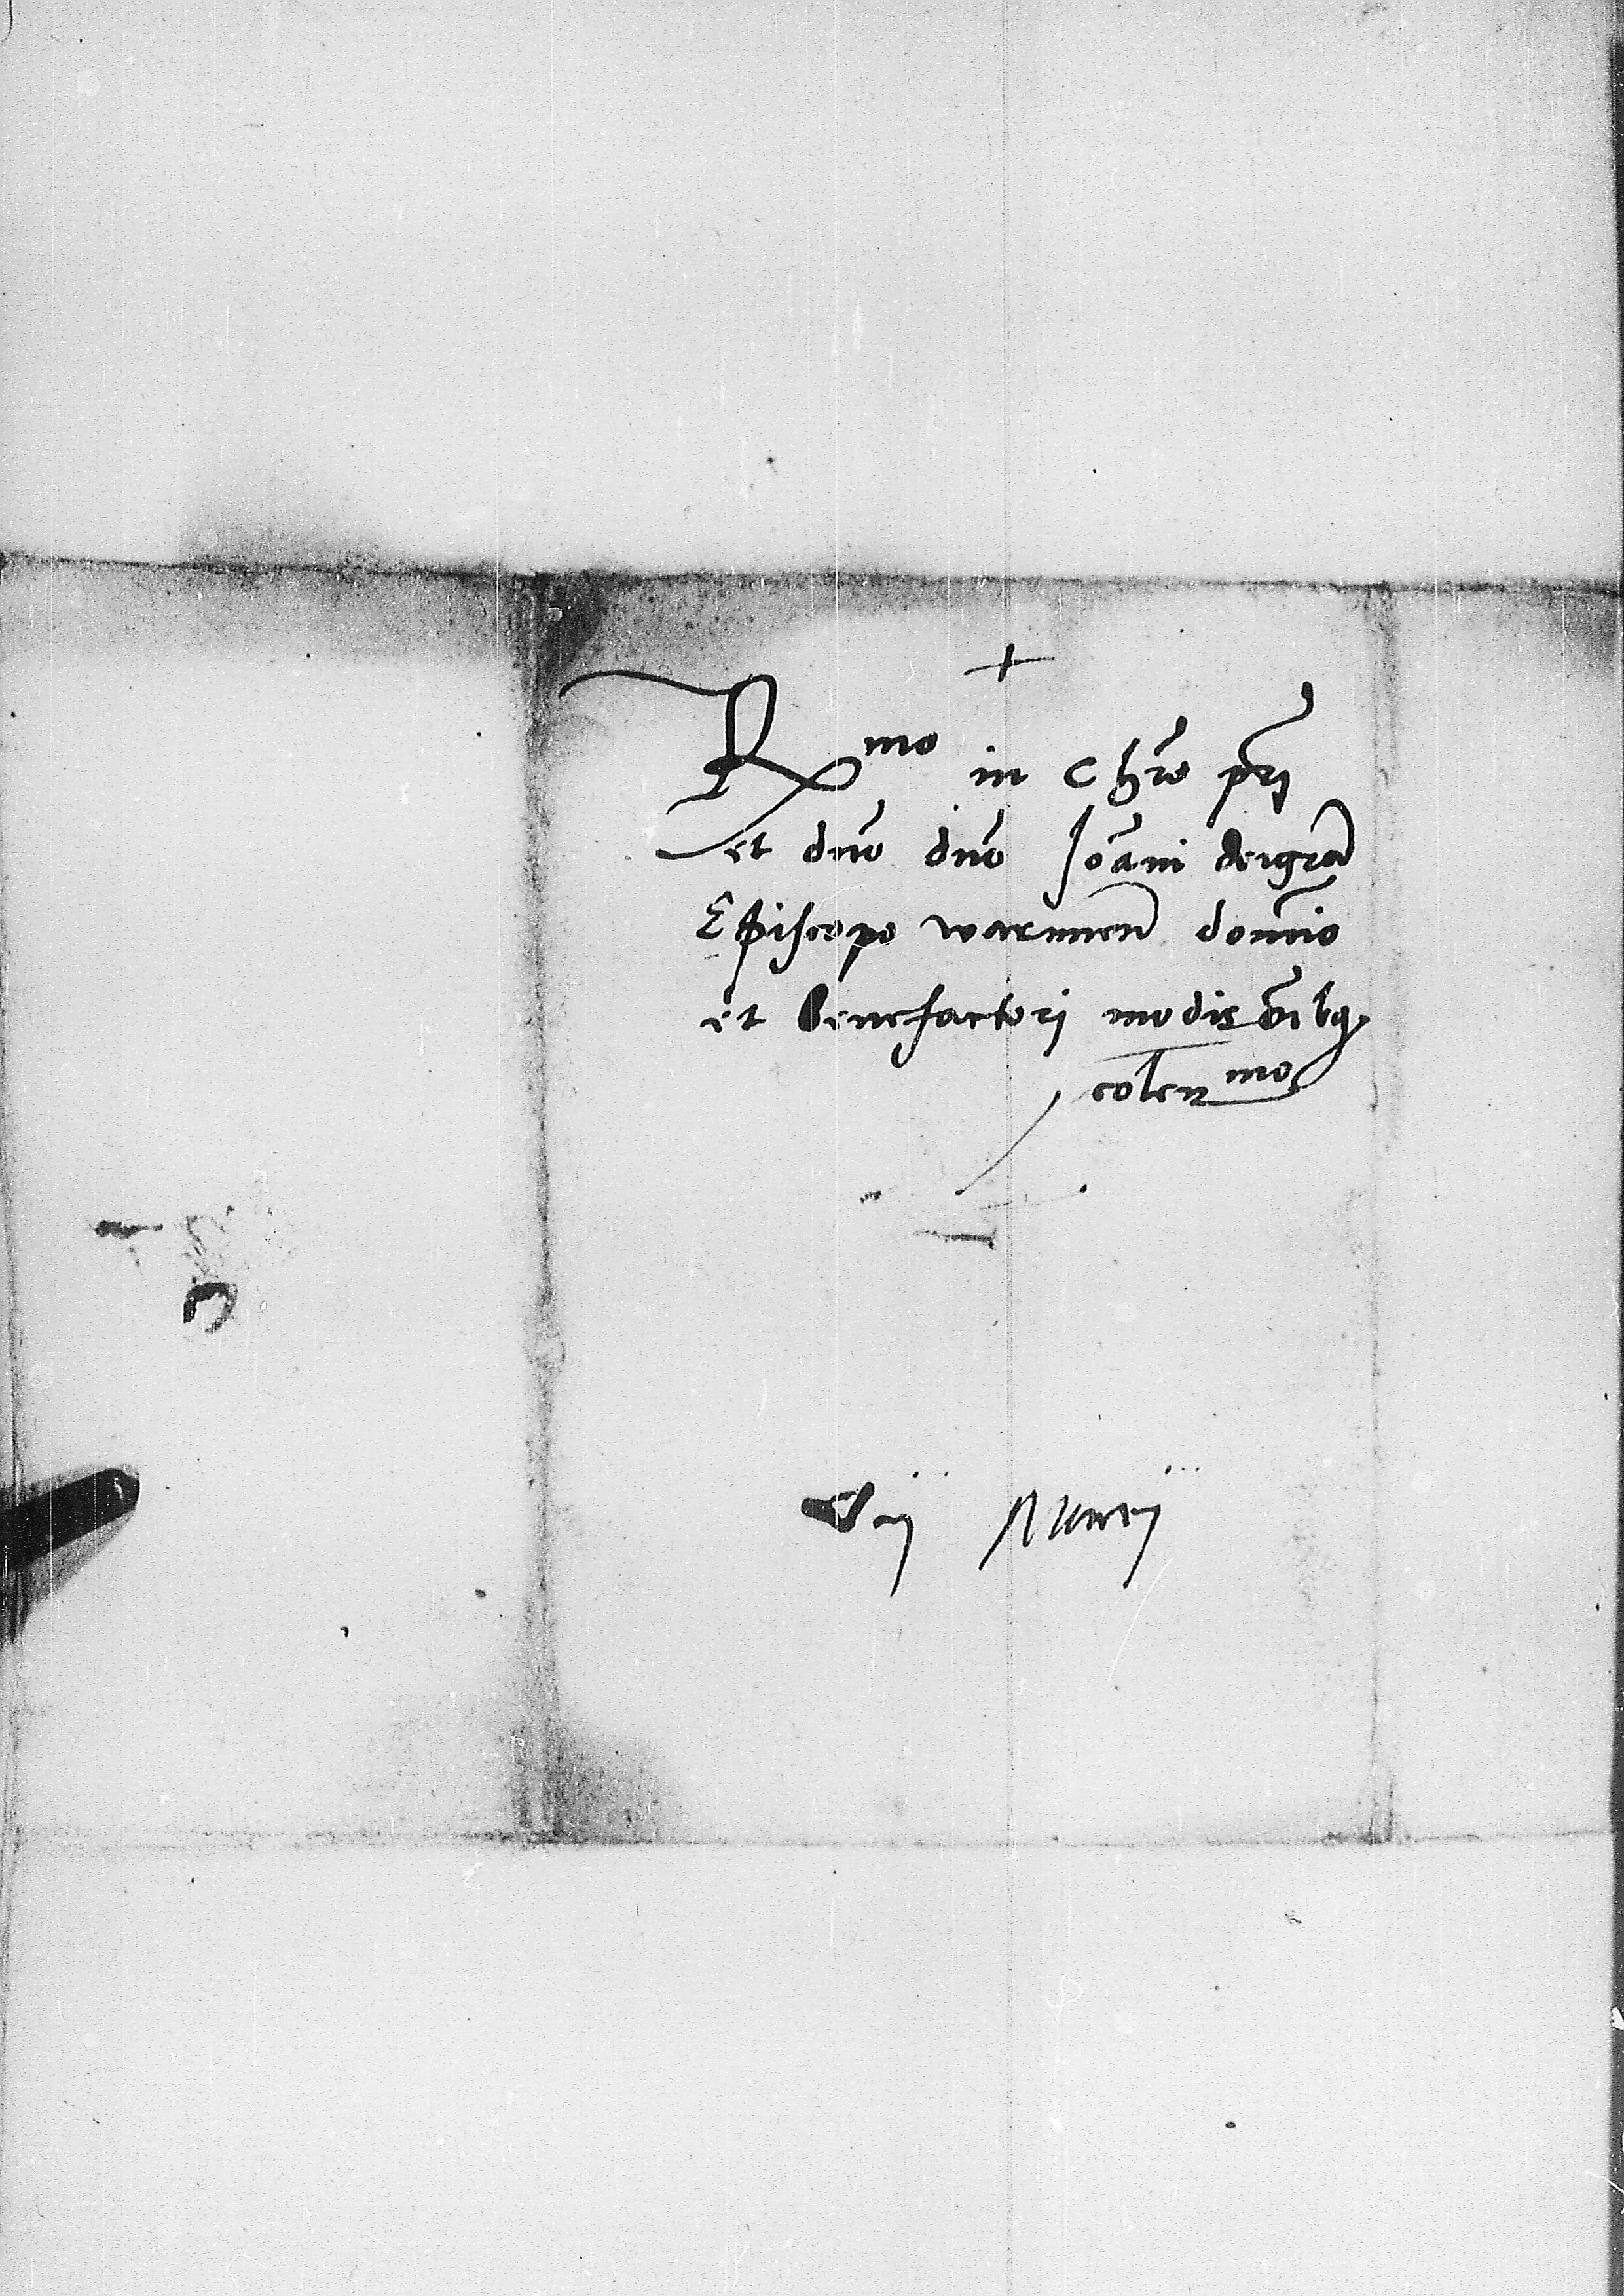 +
Rmo in Chro pri
et dno dno Joanni dei gra
Episcopo warmien domino
et Benefactori modis oibq
colenmo